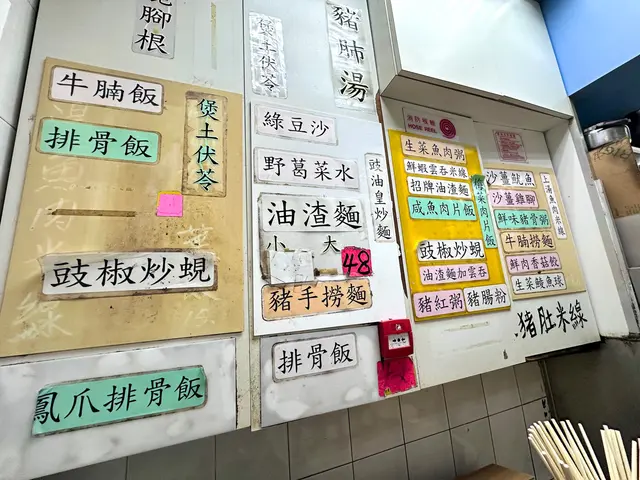 腳根
牛腩飯
煲土伏苓
排骨飯
豉椒炒蜆
鳳爪排骨飯
煲土伏苓
豬肺湯
綠豆沙
野葛菜水
豉油皇炒麵
油渣麵
小 大
48
豬手撈麵
排骨飯
消防喉轆
HOSE REEL
生菜魚肉粥
鮮蝦雲吞米線
招牌油渣麵
咸魚肉片飯
菜肉片飯
豉椒炒蜆
油渣麵加雲吞
豬紅粥
豬腸粉
沙薑魷魚
沙薑雞腳
鮮味豬骨粥
牛腩撈麵
鮮肉香菇餃
生菜鯪魚球
上湯魚肉米線
豬肚米線